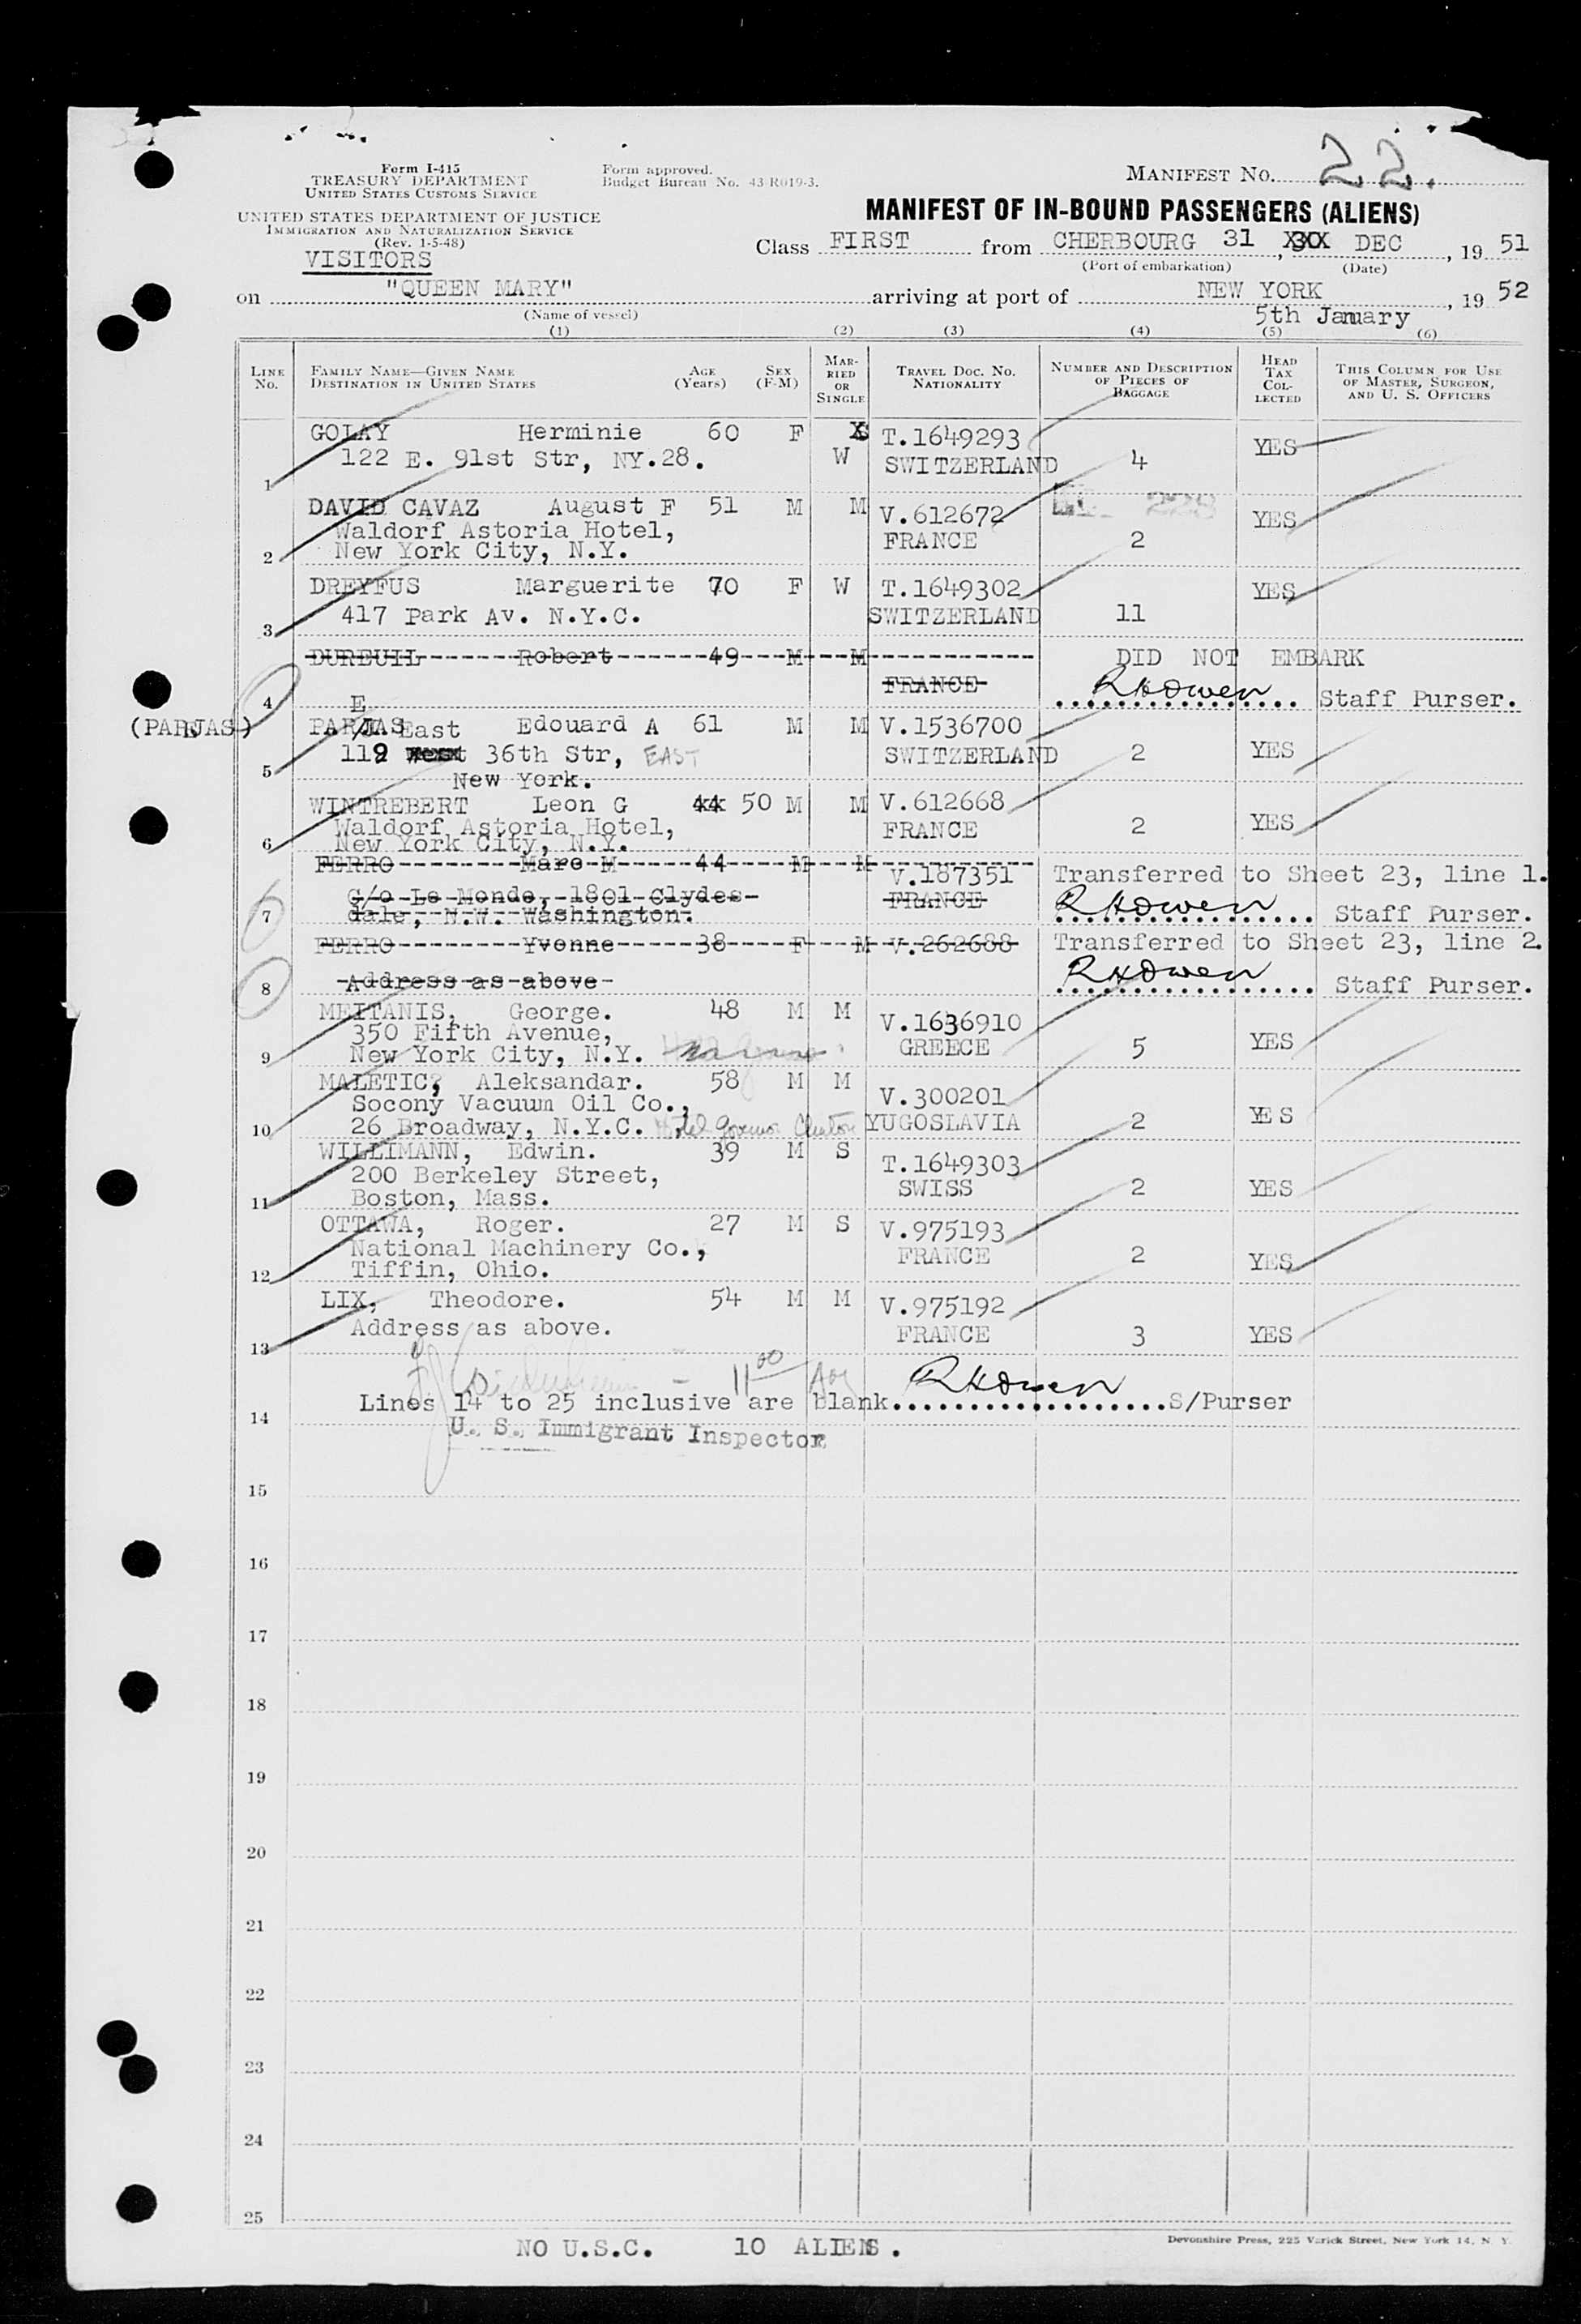 Form I-415
TREASURY DEPARTMENT
UNITED STATES CUSTOMS SERVICE
Form approved.
Budget Bureau No. 43-R019-3.
MANIFEST NO. 22.
UNITED STATES DEPARTMENT OF JUSTICE
IMMIGRATION AND NATURALIZATION SERVICE
(Rev. 1-5-48)
VISITORS
MANIFEST OF IN-BOUND PASSENGERS (ALIENS)
Class FIRST from CHERBOURG 31 DEC, 19 51
(Port of embarkation) (Date)
on "QUEEN MARY" arriving at port of NEW YORK, 19 52
(Name of vessel) 5th January
(1) (2) (3) (4) (5) (6)
LINE No. FAMILY NAME—GIVEN NAME DESTINATION IN UNITED STATES AGE (Years) SEX (F-M) MARRIED OR SINGLE TRAVEL DOC. NO. NATIONALITY NUMBER AND DESCRIPTION OF PIECES OF BAGGAGE HEAD TAX COLLECTED THIS COLUMN FOR USE OF MASTER, SURGEON, AND U. S. OFFICERS
GOLAY Herminie 60 F T.1649293 YES
122 E. 91st Str, NY.28. W SWITZERLAND 4
1
DAVID CAVAZ August F 51 M M V.612672 228 YES
Waldorf Astoria Hotel, FRANCE 2
2 New York City, N.Y.
DREYFUS Marguerite 70 F W T.1649302 YES
417 Park Av. N.Y.C. SWITZERLAND 11
3
DUREUIL Robert 49 M M DID NOT EMBARK
FRANCE
4 RHOwen Staff Purser.
E
(PAREJAS) PARJAS East Edouard A 61 M M V.1536700
119 West 36th Str, EAST SWITZERLAND 2 YES
5 New York.
WINTREBERT Leon G 44 50 M M V.612668
Waldorf Astoria Hotel, FRANCE 2 YES
6 New York City, N.Y.
FERRO Marc M 44 M M V.187351 Transferred to Sheet 23, line 1.
C/o Le Monde, 1801 Clydes- FRANCE
7 dale, N.W. Washington. RHOwen Staff Purser.
FERRO Yvonne 38 F M V.262688 Transferred to Sheet 23, line 2.
8 Address as above RHOwen Staff Purser.
MEITANIS, George. 48 M M V.1636910
350 Fifth Avenue, GREECE 5 YES
9 New York City, N.Y.
MALETIC, Aleksandar. 58 M M V.300201
Socony Vacuum Oil Co., YUGOSLAVIA 2 YES
10 26 Broadway, N.Y.C. Hotel Governor Clinton
WILLIMANN, Edwin. 39 M S T.1649303
200 Berkeley Street, SWISS 2 YES
11 Boston, Mass.
OTTAWA, Roger. 27 M S V.975193
National Machinery Co., FRANCE 2 YES
12 Tiffin, Ohio.
LIX, Theodore. 54 M M V.975192
Address as above. FRANCE 3 YES
13
11 00
Lines 14 to 25 inclusive are blank RHOwen S/Purser
14 U. S. Immigrant Inspector
15
16
17
18
19
20
21
22
23
24
25
NO U.S.C. 10 ALIENS.
Devonshire Press, 225 Varick Street, New York 14, N. Y.